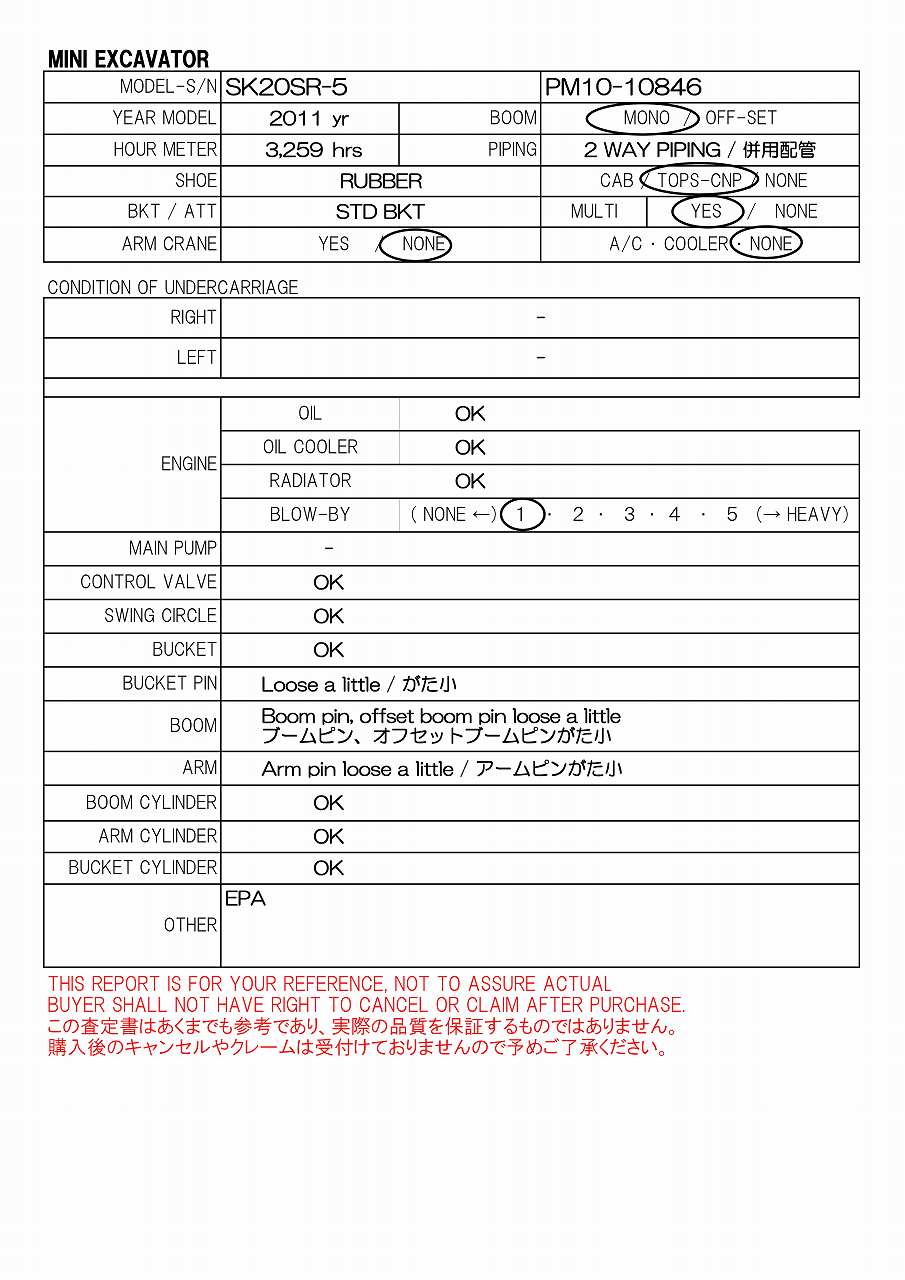 MINI EXCAVATOR
MODEL-S/N SK20SR-5 PM10-10846
YEAR MODEL 2011 yr BOOM MONO / OFF-SET
HOUR METER 3,259 hrs PIPING 2 WAY PIPING / 併用配管
SHOE RUBBER CAB / TOPS-CNP / NONE
BKT / ATT STD BKT MULTI YES / NONE
ARM CRANE YES / NONE A/C · COOLER · NONE
CONDITION OF UNDERCARRIAGE
RIGHT -
LEFT -
ENGINE
OIL OK
OIL COOLER OK
RADIATOR OK
BLOW-BY ( NONE ←) 1 · 2 · 3 · 4 · 5 (→ HEAVY)
MAIN PUMP -
CONTROL VALVE OK
SWING CIRCLE OK
BUCKET OK
BUCKET PIN Loose a little / がた小
BOOM Boom pin, offset boom pin loose a little
ブームピン、オフセットブームピンがた小
ARM Arm pin loose a little / アームピンがた小
BOOM CYLINDER OK
ARM CYLINDER OK
BUCKET CYLINDER OK
OTHER EPA
THIS REPORT IS FOR YOUR REFERENCE, NOT TO ASSURE ACTUAL
BUYER SHALL NOT HAVE RIGHT TO CANCEL OR CLAIM AFTER PURCHASE.
この査定書はあくまでも参考であり、実際の品質を保証するものではありません。
購入後のキャンセルやクレームは受付けておりませんので予めご了承ください。